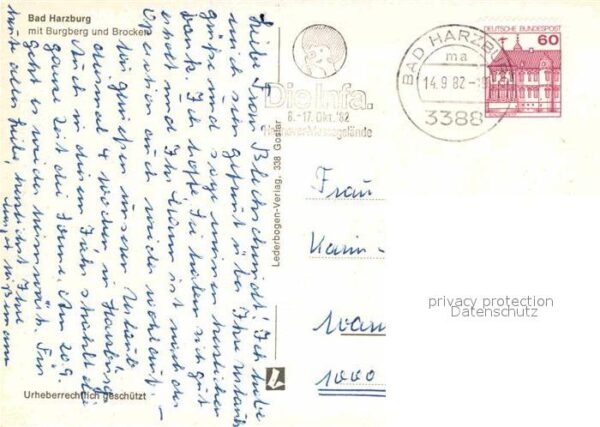 Bad Harzburg
mit Burgberg und Brocken
Liebe Frau Blechschmidt! Ich habe
mich sehr gefreut über Ihre Urlaubs
grüße und sage meinen herzlichen
Dank. Ich hoffe, Sie haben sich gut
erholt und Ihr Mann ist nach der
Operation auch wieder wohlauf. –
Wir genießen unseren Urlaub
diesmal 4 Wochen in Harzburg
auch in diesem Jahr strahlt die
ganze Zeit die Sonne. Am 20.9.
geht es wieder heimwärts. Für
heute alles Gute, herzlichst Ihre
Urheberrechtlich geschützt
Lederbogen-Verlag, 338 Goslar
Die Infa.
8.-17. Okt. '82
Hannover Messegelände
BAD HARZBURG
ma
14.9.82
3388
DEUTSCHE BUNDESPOST
60
Frau
Karin
1000
privacy protection
Datenschutz